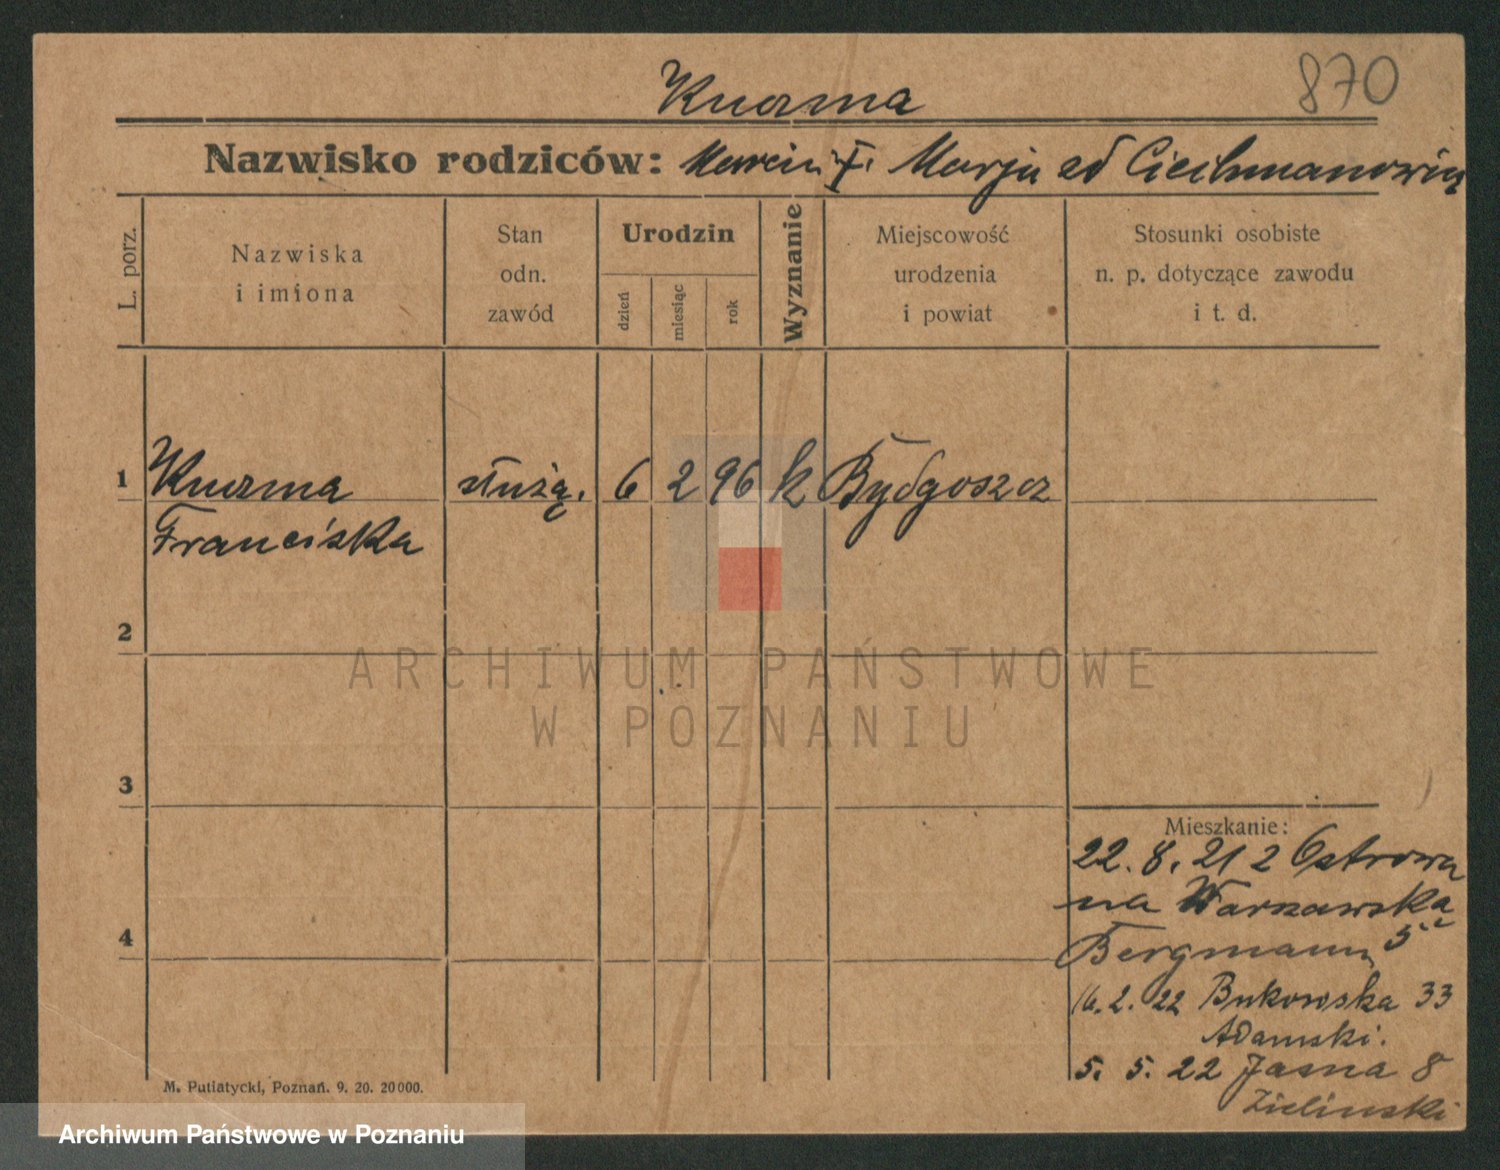 870
Kuczma
Nazwisko rodziców: Marcin i Marja zd Ciechmanowicz
L. porz.
Nazwiska
i imiona
Stan
odn.
zawód
Urodzin
dzień
miesiąc
rok
Wyznanie
Miejscowość
urodzenia
i powiat
Stosunki osobiste
n. p. dotyczące zawodu
i t. d.
1 Kuczma służą. 6 2 96 k Bydgoszcz
Franciska
2
3
4
Mieszkanie:
22. 8. 21 z Ostrowa
na Warszawska
Bergmann 5
16. 2. 22 Bukowska 33
Adamski.
5. 5. 22 Jasna 8
Zieliński
M. Putiatycki, Poznań. 9. 20. 20000.
ARCHIWUM PAŃSTWOWE
W POZNANIU
Archiwum Państwowe w Poznaniu